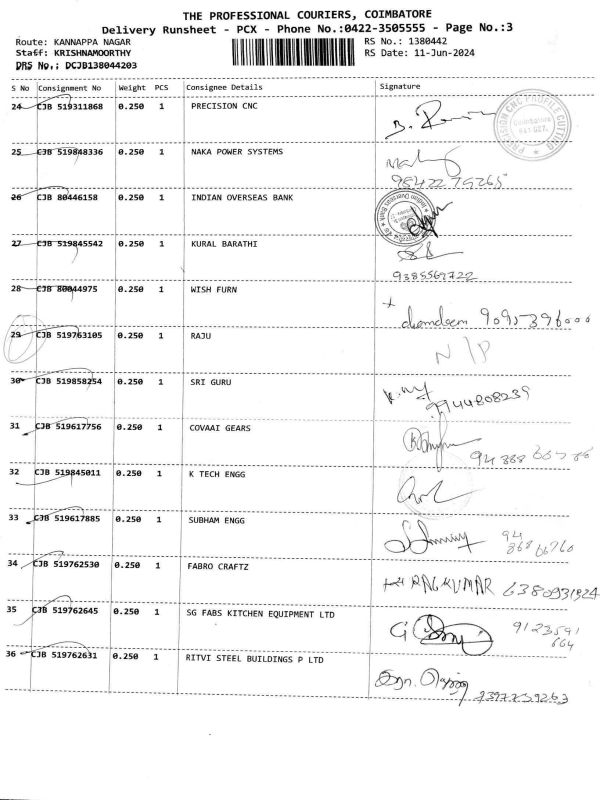 THE PROFESSIONAL COURIERS, COIMBATORE
Delivery Runsheet - PCX - Phone No.:0422-3505555 - Page No.:3
Route: KANNAPPA NAGAR RS No.: 1380442
Staff: KRISHNAMOORTHY RS Date: 11-Jun-2024
DRS No.: DCJB138044203
S No Consignment No Weight PCS Consignee Details Signature
24 CJB 519311868 0.250 1 PRECISION CNC
PRECISION CNC PROFILE CUTTING
25 CJB 519848336 0.250 1 NAKA POWER SYSTEMS
26 CJB 80446158 0.250 1 INDIAN OVERSEAS BANK
Indian Overseas Bank
27 CJB 519845542 0.250 1 KURAL BARATHI
9385569722
28 CJB 80044975 0.250 1 WISH FURN
29 CJB 519763105 0.250 1 RAJU N/P
30 CJB 519858254 0.250 1 SRI GURU
9944808239
31 CJB 519617756 0.250 1 COVAAI GEARS
32 CJB 519845011 0.250 1 K TECH ENGG
33 CJB 519617885 0.250 1 SUBHAM ENGG
34 CJB 519762530 0.250 1 FABRO CRAFTZ RAGKUMAR 6380931924
35 CJB 519762645 0.250 1 SG FABS KITCHEN EQUIPMENT LTD G 9123591
664
36 CJB 519762631 0.250 1 RITVI STEEL BUILDINGS P LTD